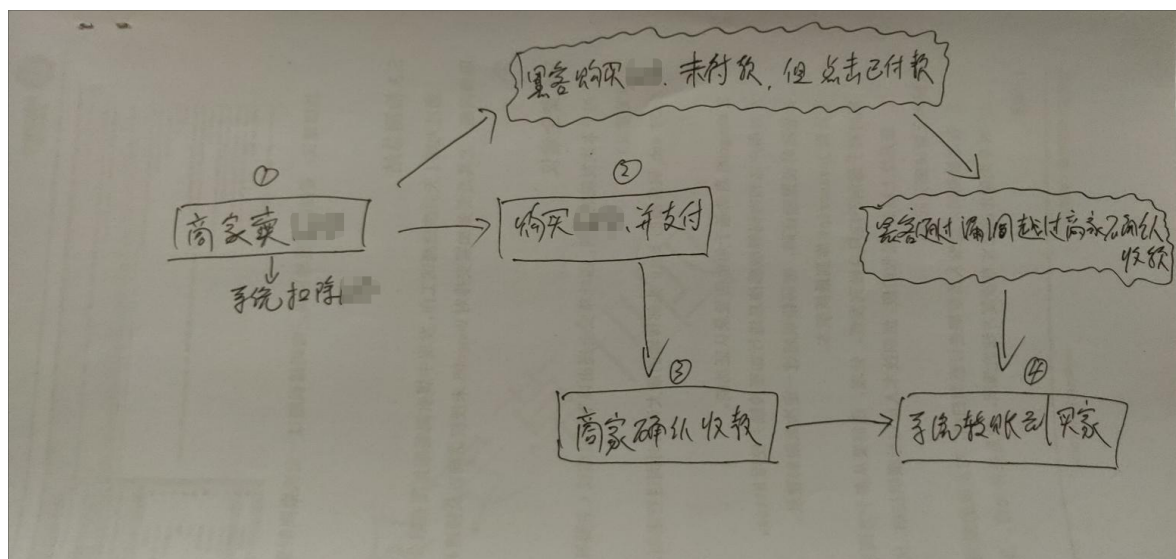 黑客购买 、未付款，但点击已付款
①
商家卖
系统扣除
②
购买 、并支付
黑客通过漏洞越过商家确认
收款
③
商家确认收款
④
系统转账到买家